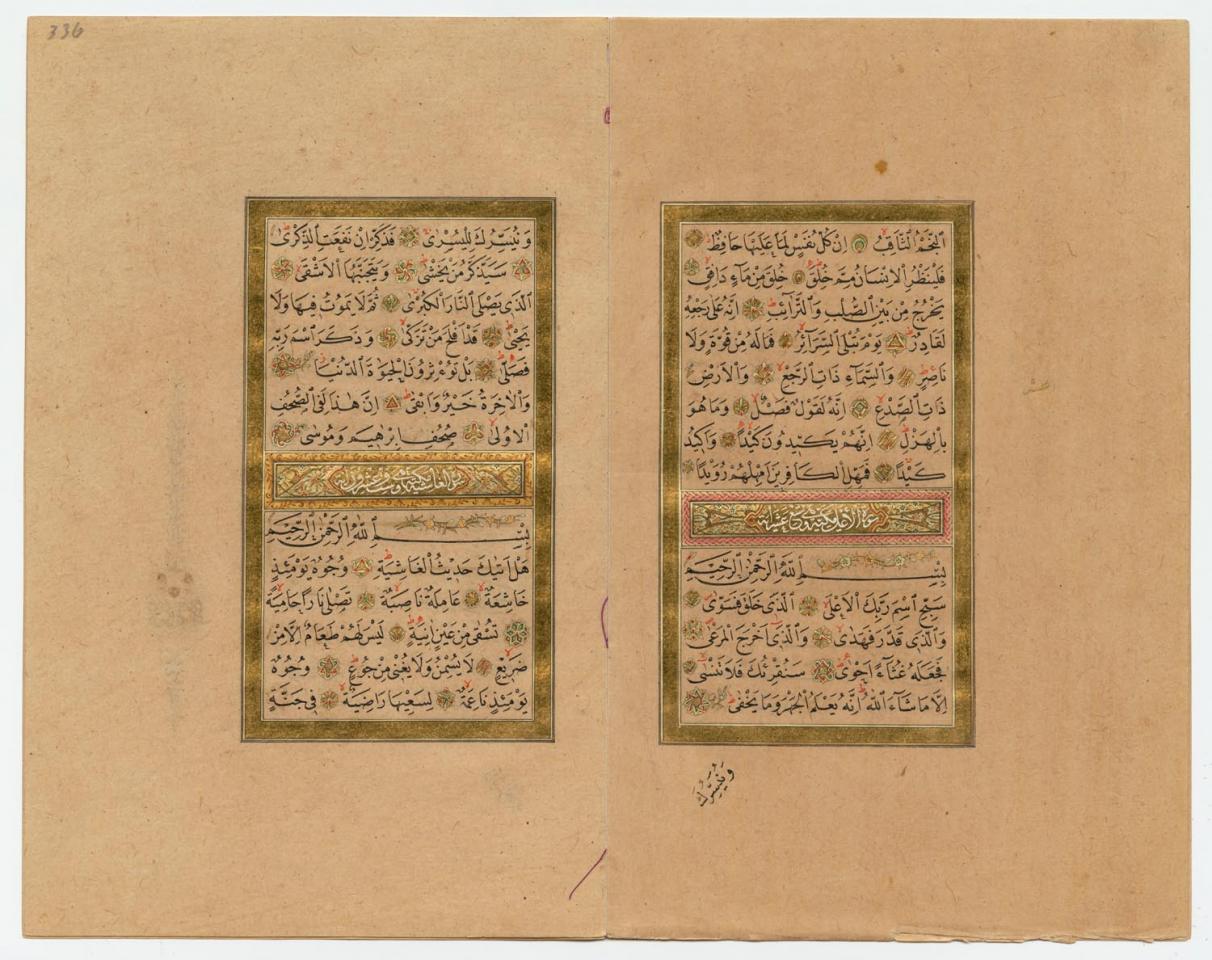 اَلنَّجْمُ الثَّاقِبُ اِنْ كُلُّ نَفْسٍ لَمَّا عَلَيْهَا حَافِظٌ
فَلْيَنْظُرِ الْاِنْسَانُ مِمَّ خُلِقَ خُلِقَ مِنْ مَاءٍ دَافِقٍ
يَخْرُجُ مِنْ بَيْنِ الصُّلْبِ وَالتَّرَائِبِ اِنَّهُ عَلٰى رَجْعِهِ
لَقَادِرٌ يَوْمَ تُبْلَى السَّرَائِرُ فَمَالَهُ مِنْ قُوَّةٍ وَلَا
نَاصِرٍ وَالسَّمَاءِ ذَاتِ الرَّجْعِ وَالْاَرْضِ
ذَاتِ الصَّدْعِ اِنَّهُ لَقَوْلٌ فَصْلٌ وَمَا هُوَ
بِالْهَزْلِ اِنَّهُمْ يَكِيدُونَ كَيْدًا وَاَكِيدُ
كَيْدًا فَمَهِّلِ الْكَافِرِينَ اَمْهِلْهُمْ رُوَيْدًا
بِسْمِ اللّٰهِ الرَّحْمٰنِ الرَّحِيمِ
سَبِّحِ اسْمَ رَبِّكَ الْاَعْلٰى اَلَّذِى خَلَقَ فَسَوّٰى
وَالَّذِى قَدَّرَ فَهَدٰى وَالَّذِى اَخْرَجَ الْمَرْعٰى
فَجَعَلَهُ غُثَاءً اَحْوٰى سَنُقْرِئُكَ فَلَا تَنْسٰى
اِلَّا مَا شَاءَ اللّٰهُ اِنَّهُ يَعْلَمُ الْجَهْرَ وَمَا يَخْفٰى
وَنُيَسِّرُكَ
وَنُيَسِّرُكَ لِلْيُسْرٰى فَذَكِّرْ اِنْ نَفَعَتِ الذِّكْرٰى
سَيَذَّكَّرُ مَنْ يَخْشٰى وَيَتَجَنَّبُهَا الْاَشْقٰى
اَلَّذِى يَصْلَى النَّارَ الْكُبْرٰى ثُمَّ لَا يَمُوتُ فِيهَا وَلَا
يَحْيٰى قَدْ اَفْلَحَ مَنْ تَزَكّٰى وَذَكَرَ اسْمَ رَبِّهِ
فَصَلّٰى بَلْ تُؤْثِرُونَ الْحَيٰوةَ الدُّنْيَا
وَالْاٰخِرَةُ خَيْرٌ وَاَبْقٰى اِنَّ هٰذَا لَفِى الصُّحُفِ
الْاُولٰى صُحُفِ اِبْرٰهِيمَ وَمُوسٰى
بِسْمِ اللّٰهِ الرَّحْمٰنِ الرَّحِيمِ
هَلْ اَتٰيكَ حَدِيثُ الْغَاشِيَةِ وُجُوهٌ يَوْمَئِذٍ
خَاشِعَةٌ عَامِلَةٌ نَاصِبَةٌ تَصْلٰى نَارًا حَامِيَةً
تُسْقٰى مِنْ عَيْنٍ اٰنِيَةٍ لَيْسَ لَهُمْ طَعَامٌ اِلَّا مِنْ
ضَرِيعٍ لَا يُسْمِنُ وَلَا يُغْنِى مِنْ جُوعٍ وُجُوهٌ
يَوْمَئِذٍ نَاعِمَةٌ لِسَعْيِهَا رَاضِيَةٌ فِى جَنَّةٍ
336